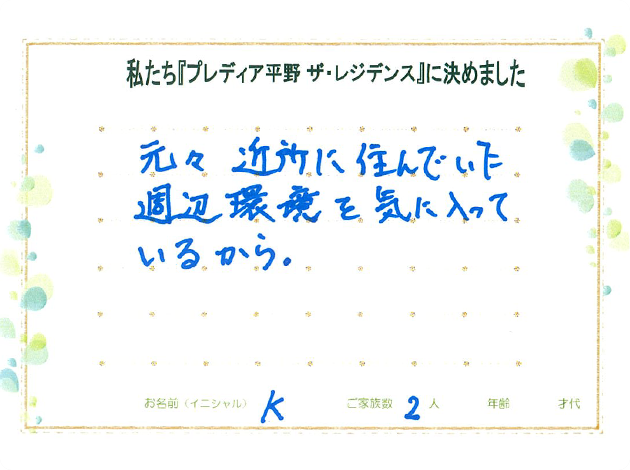 私たち『プレディア平野 ザ・レジデンス』に決めました
元々 近所に住んでいた
周辺環境を気に入って
いるから。
お名前（イニシャル） K ご家族数 2 人 年齢 才代